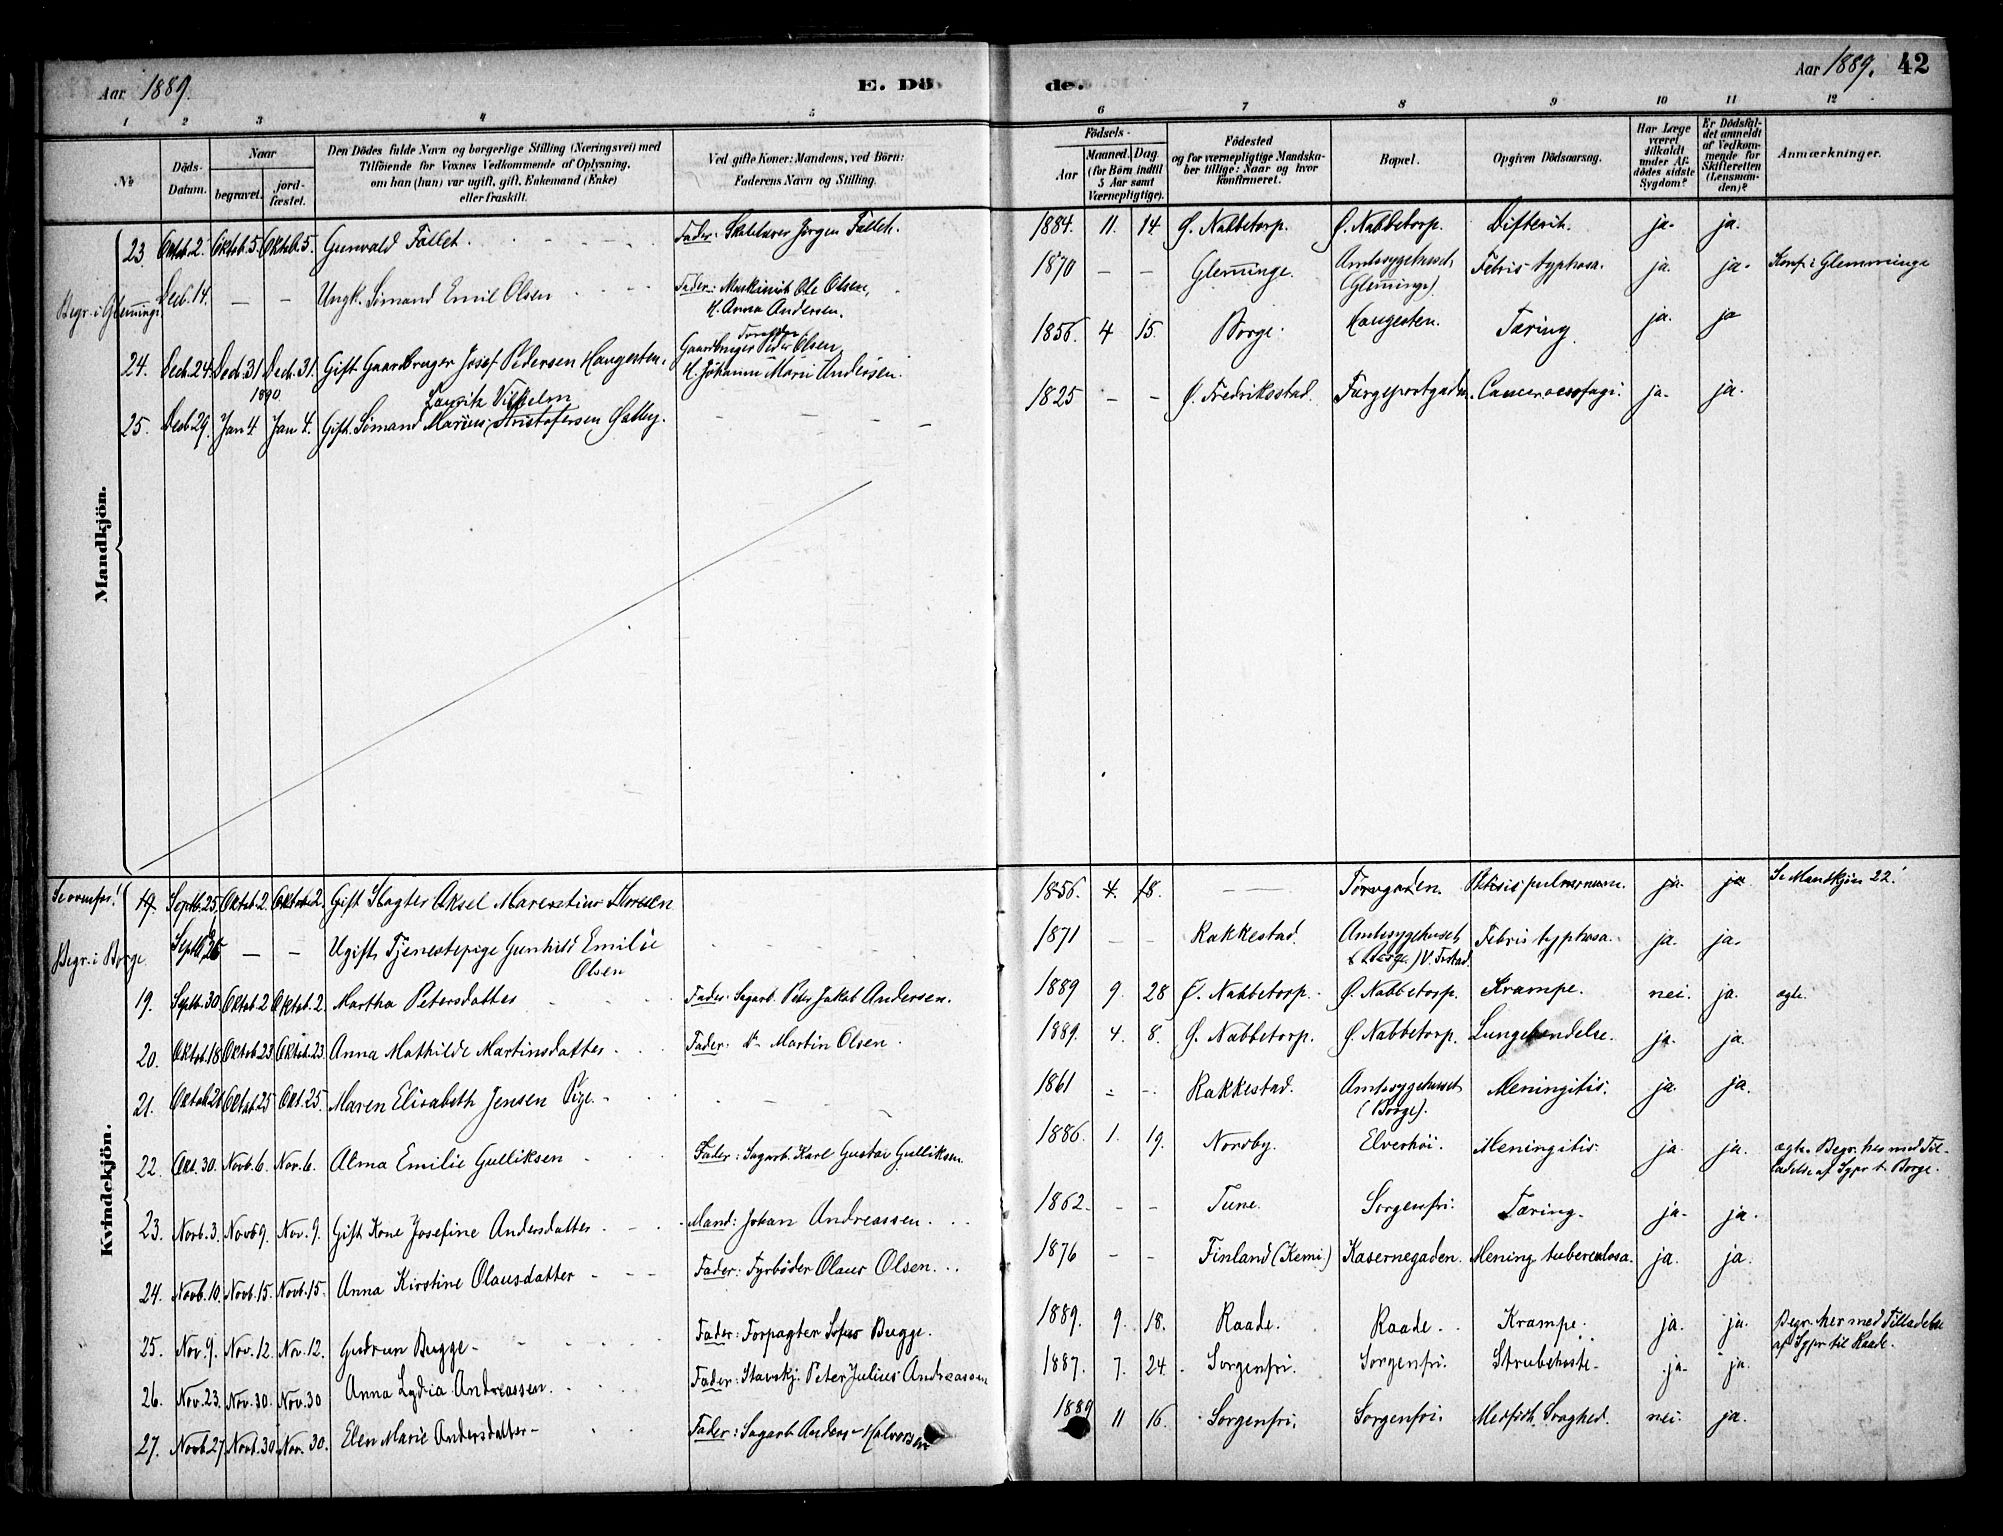 Aar 1889.
E. Dö
de.
Aar 1889.
42
1 2 3 4 5 6 7 8 9 10 11 12
No
Döds-Datum.
Naar
begravet.
jordfæstet.
Den Dödes fulde Navn og borgerlige Stilling (Næringsvei) med
Tilföiende for Voxnes Vedkommende af Oplysning,
om han (hun) var ugift, gift, Enkemand (Enke)
eller fraskilt.
Ved gifte Koner: Mandens, ved Börn:
Faderens Navn og Stilling.
Födsels-
Aar
Maaned. Dag
(for Börn indtil
5 Aar samt
Værnepligtige).
Födested
og for værnepligtige Mandskaber tillige: Naar og hvor
konfirmeret.
Bopæl.
Opgiven Dödsaarsag.
Har Læge
været
tilkaldt
under Afdödes sidste
Sygdom?
Er Dödsfaldet anmeldt
af Vedkommende for
Skifteretten
(Lensmanden)?
Anmærkninger.
Mandkjön.
23. Oktob. 2. Oktob. 5. Oktob. 5. Gunvald Falleth. Fader: Jörgen Falleth. 1884. 11. 14 Ø. Nabbetorp. Ø. Nabbetorp. Difterit. ja. ja.
Begr. i Glemminge Decb. 14. — — Ungk. Sömand Emil Olsen Fader: Maskinist Ole Olsen, 1870 — — Glemminge. Amtssygehuset Febris typhosa. ja. ja. Konf. i Glemminge
M. Anna Andersen. (Glemminge)
24. Decb. 24. Decb. 31 Decb. 31. Gift Gaardbruger Josef Pedersen Haugesten. Gaardbruger Peder Olsen, 1856. 4 15. Borge. Haugesten. Tæring. ja. ja
M. Johanne Marie Andersen.
1890
25. Decb. 29. Jan 4 Jan 4. Gift. Sömand Marius Kristofersen Gatby. — — — 1825 — — Ø. Fredriksstad. Færgeportgaden. Cancer oesofagi. ja. ja.
Vilhelm
Kvindekjön.
Se ovenfor! 19. Septb. 25. Oktob. 2. Oktob. 2. Gift Slagter Aksel Marentius Thoresen 1856. 4. 18. — Torvgaden. Phtisis pulmonum. ja. ja. Se Mandkjön 22.
Begr. i Borge Septb. 26 — — Ugift Tjenestepige Gunhild Emilie 1871 — — Rakkestad. Amtssygehuset Febris typhosa. ja. ja.
Olsen (Borge) V. Frstad.
19. Septb. 30. Oktob. 2 Oktob. 2. Martha Petersdatter Fader: Sagarb. Peter Jakob Andersen. 1889 9. 28 Ø. Nabbetorp. Ø. Nabbetorp. Krampe. nei. ja. ægte.
20. Oktob. 18. Oktob. 23 Oktob. 23. Anna Mathilde Martinsdatter Fader: do Martin Olsen. 1889. 4. 8. Ø. Nabbetorp. Ø. Nabbetorp. Lungebetændelse. ja. ja.
21. Oktob. 21 Oktob. 25 Okt. 25. Maren Elisabeth Jensen Pige. 1861 — — Rakkestad. Amtssygehuset Meningitis. ja. ja.
(Borge).
22. Okt. 30. Novb. 6. Nov. 6. Alma Emilie Gulliksen Fader: Sagarb. Karl Gustav Gulliksen. 1886. 1. 19. Nordby. Elverhöi. Meningitis. ja. ja. ægte. Begr. her med Tilladelse af Sgpr t. Borge.
23. Novb. 3. Novb. 9. Nov. 9. Gift Kone Josefine Andersdatter Mand: Johan Andreassen. 1862. — — Tune. Sorgenfri. Tæring. ja. ja.
24. Novb. 10. Novb. 15. Novb. 15. Anna Kirstine Olausdatter Fader: Fyrböder Olaus Olsen. 1876 — — Finland (Kemi.) Kasernegaden. Mening. tuberculosa. ja. ja.
25. Nov. 9. Nov. 12. Nov. 12. Gudrun Bugge Fader: Forpagter Sofus Bugge. 1889. 9. 18. Raade. Raade. Krampe. ja. ja. Begr. her med Tilladelse
af Sgpr til Raade.
26. Nov. 23. Nov. 30. Nov. 30 Anna Lydia Andreassen. Fader: Stavskj. Peter Julius Andreassen 1887. 7. 24. Sorgenfri. Sorgenfri. Strubehoste. ja. ja.
27. Novb. 27 Novb. 30 Nov. 30. Elen Marie Andersdatter Fader: Sagarb. Anders Halvorsen 1889 11 16. Sorgenfri. Sorgenfri. Medfödt Svaghed. nei. ja.